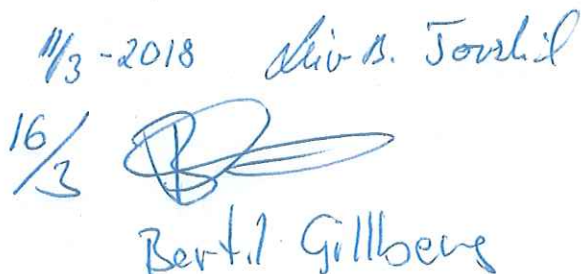 11/3-2018 Liv B. Tovslid
16/3
Bertil Gillberg